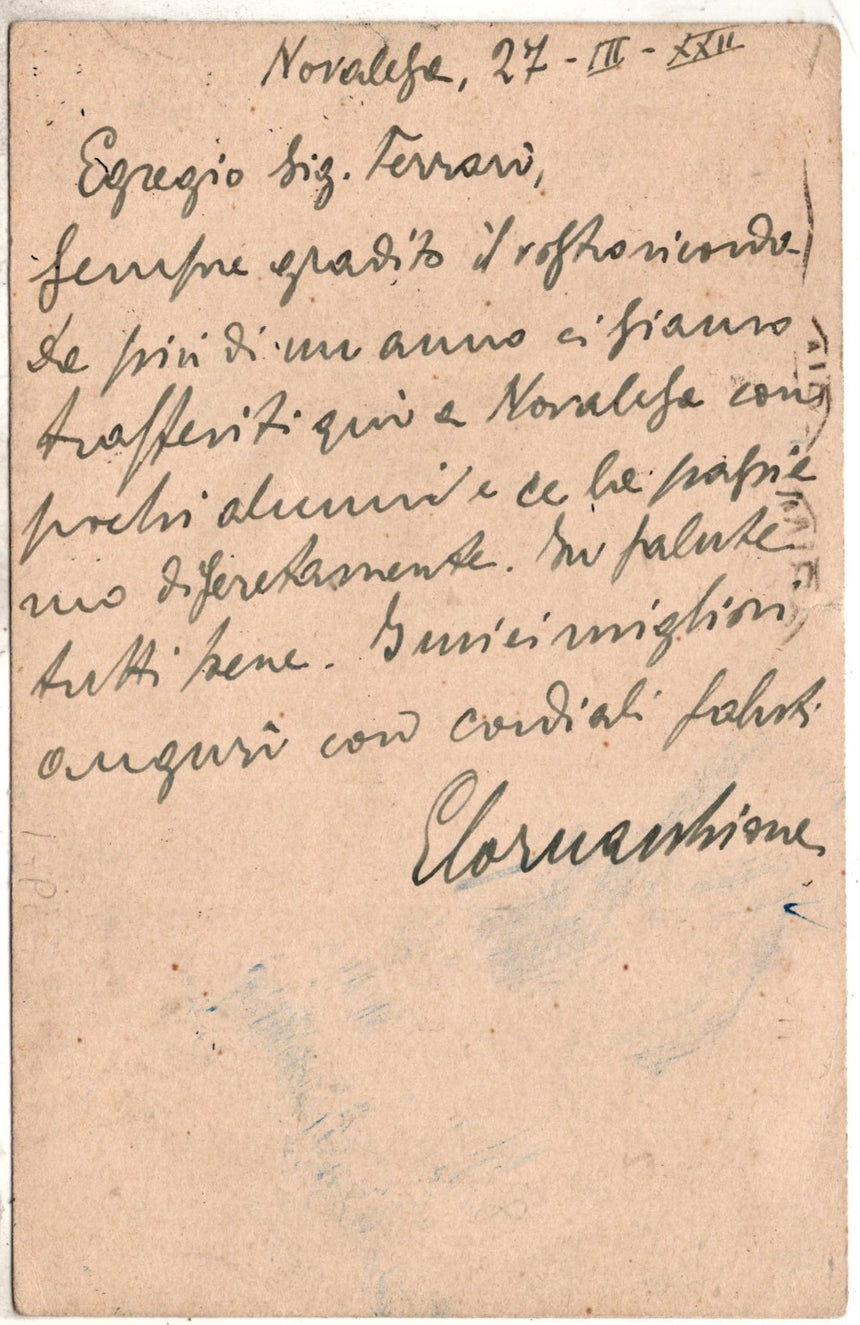 Novalesa, 27 - III - XXII
Egregio Sig. Ferrari,
sempre gradito il vostro ricordo
Da più di un anno ci siamo
trasferiti qui a Novalesa con
pochi alunni e ce la passia
mo discretamente. In salute
tutti bene. I miei migliori
auguri con cordiali saluti